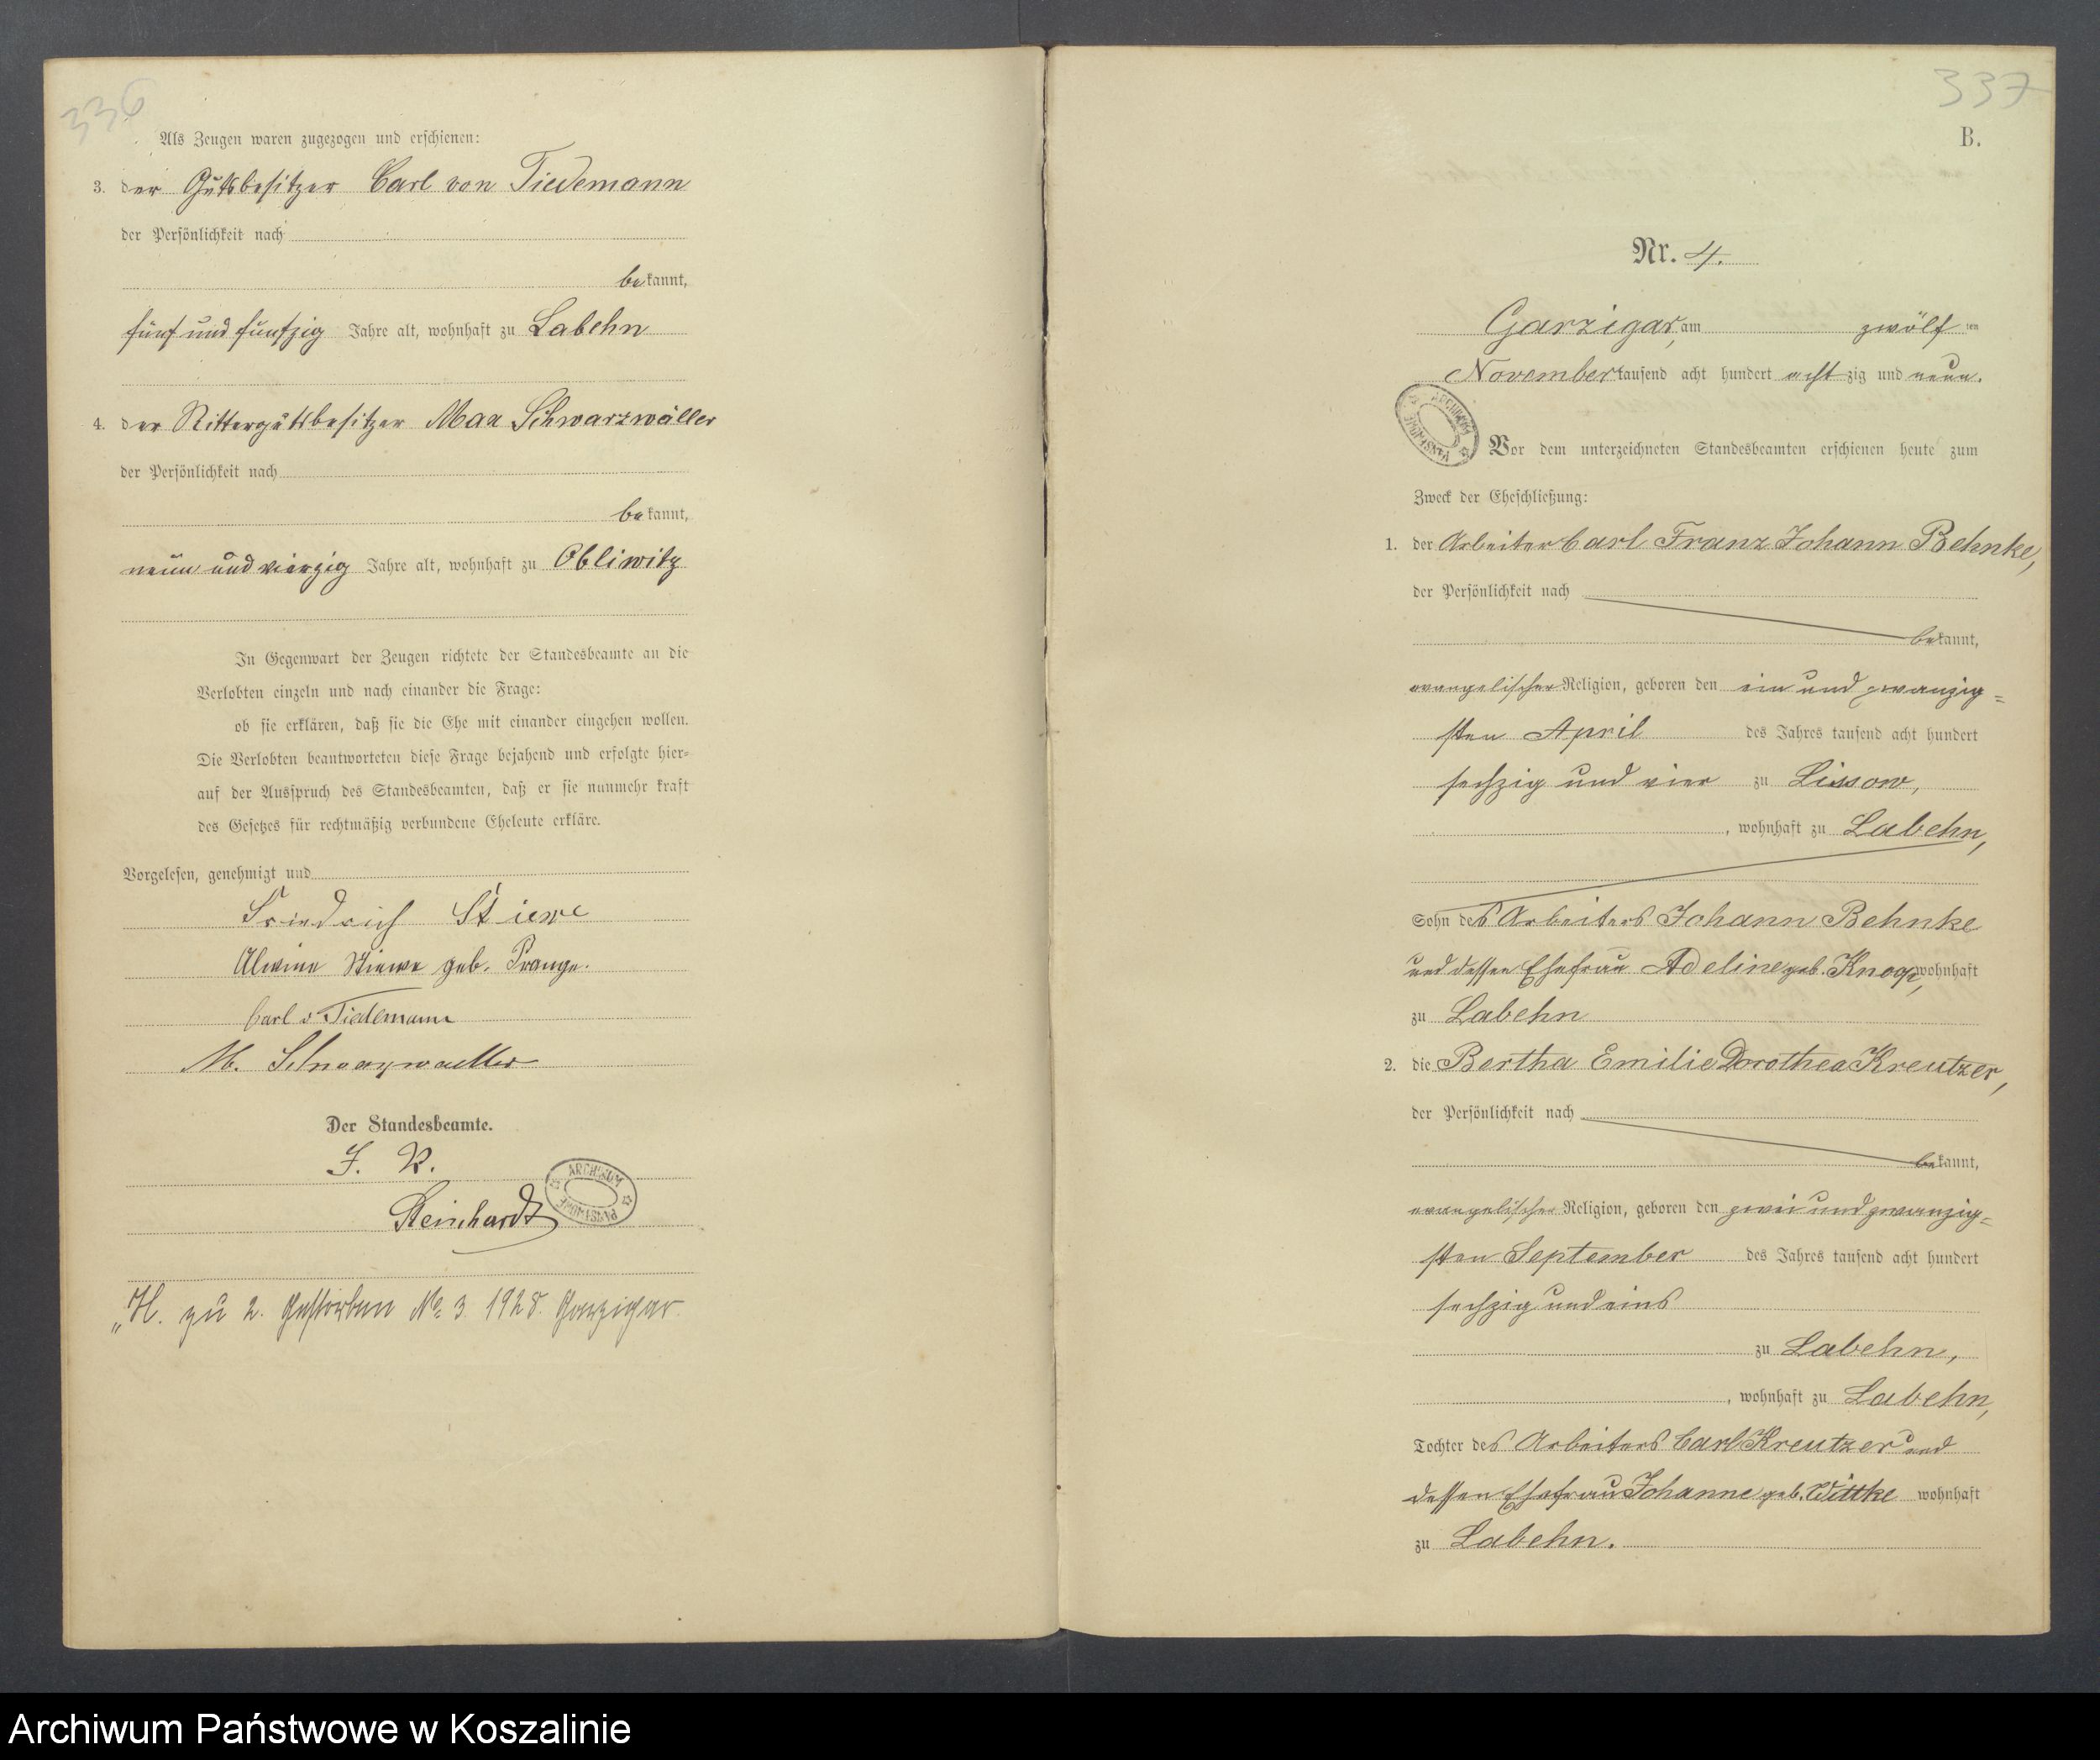 336
Als Zeugen waren zugezogen und erschienen:
3. der Gutsbesitzer Carl von Tiedemann
der Persönlichkeit nach
bekannt,
fünf und fünfzig Jahre alt, wohnhaft zu Labehn
4. der Rittergutsbesitzer Max Schwarzwäller
der Persönlichkeit nach
bekannt,
neun und vierzig Jahre alt, wohnhaft zu Obliwitz
In Gegenwart der Zeugen richtete der Standesbeamte an die
Verlobten einzeln und nach einander die Frage:
ob sie erklären, daß sie die Ehe mit einander eingehen wollen.
Die Verlobten beantworteten diese Frage bejahend und erfolgte hier-
auf der Ausspruch des Standesbeamten, daß er sie nunmehr kraft
des Gesetzes für rechtmäßig verbundene Eheleute erkläre.
Vorgelesen, genehmigt und
Friedrich Stiewe
Alwine Stiewe geb. Prange.
Carl v Tiedemann
M. Schwarzwaeller
Der Standesbeamte.
J. V.
Reinhardt
ARCHIWUM PAŃSTWOWE
„H. zu 2. Gestorben No 3 1928. Garzigar.
337
B.
Nr. 4.
Garzigar, am zwölf ten
November tausend acht hundert achtzig und neun.
ARCHIWUM PAŃSTWOWE
Vor dem unterzeichneten Standesbeamten erschienen heute zum
Zweck der Eheschließung:
1. der Arbeiter Carl Franz Johann Behnke,
der Persönlichkeit nach
bekannt,
evangelischer Religion, geboren den ein und zwanzig-
sten April des Jahres tausend acht hundert
sechzig und vier zu Lissow,
, wohnhaft zu Labehn,
Sohn des Arbeiters Johann Behnke
und dessen Ehefrau Adeline geb. Knop, wohnhaft
zu Labehn
2. die Bertha Emilie Dorothea Kreutzer,
der Persönlichkeit nach
bekannt,
evangelischer Religion, geboren den zwei und zwanzig-
sten September des Jahres tausend acht hundert
sechzig und eins
zu Labehn,
, wohnhaft zu Labehn,
Tochter des Arbeiters Carl Kreutzer und
dessen Ehefrau Johanne geb. Wittke wohnhaft
zu Labehn.
Archiwum Państwowe w Koszalinie